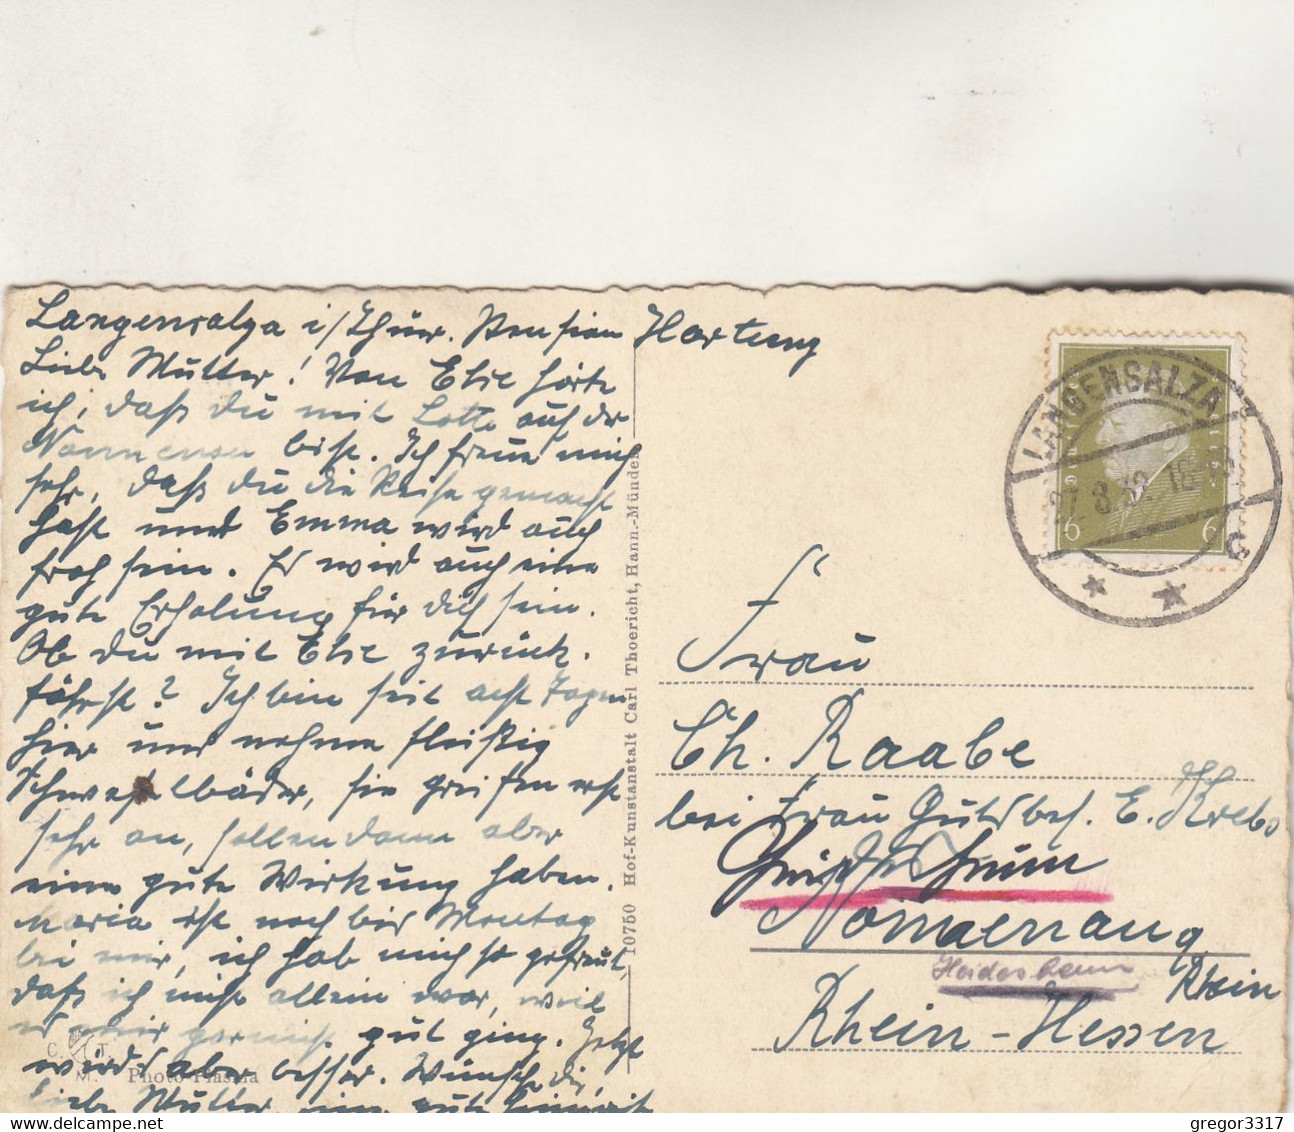 Langensalza i/Thür. Pension Hartung
Liebe Mutter! Von Else hörte
ich, daß du mit Lotte auf der
Nonnenau bist. Ich freue mich
sehr, daß du die Reise gemacht
hast und Emma wird auch
froh sein. Es wird auch eine
gute Erholung für dich sein.
Ob du mit Else zurück
fährst? Ich bin seit acht Tagen
hier und nehme fleißig
Schwefelbäder, sie greifen erst
sehr an, sollen dann aber
eine gute Wirkung haben.
Maria ist noch bis Montag
bei mir, ich hab mich so gefreut,
daß ich nicht allein war, weil
es mir garnicht gut ging. Jetzt
wirds aber besser. Wünsche dir,
liebe Mutter eine gute
C. T.
M. Photo-Plasma
10750 Hof-Kunstanstalt Carl Thoericht, Hann.-Münden
LANGENSALZA
27.8.32.18
6 6
Frau
Ch. Raabe
bei Frau Gutsbes. E. Krebs
Nonnenaue
Heidesheim
Rhein
Rhein-Hessen
gregor3317